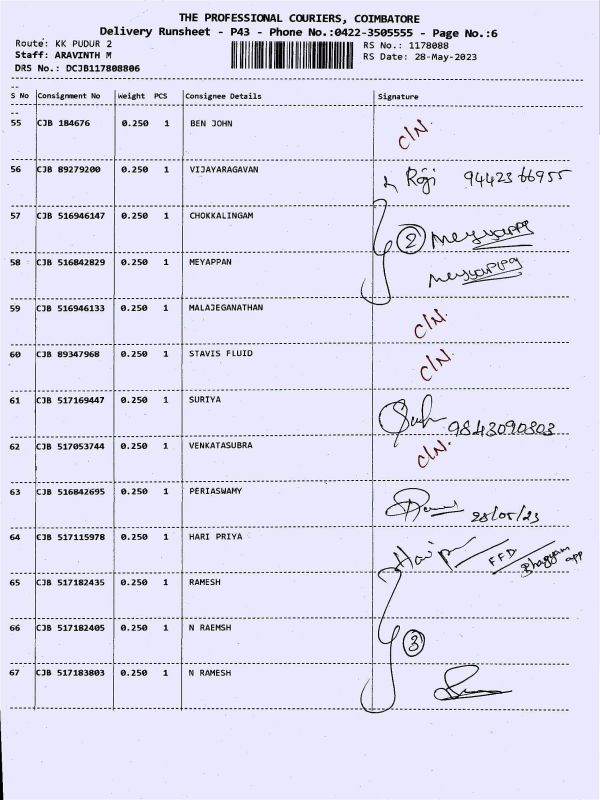 THE PROFESSIONAL COURIERS, COIMBATORE
Delivery Runsheet - P43 - Phone No.:0422-3505555 - Page No.:6
Route: KK PUDUR 2
RS No.: 1178088
Staff: ARAVINTH M
RS Date: 28-May-2023
DRS No.: DCJB117808806
--
S No Consignment No Weight PCS Consignee Details Signature
--
55 CJB 184676 0.250 1 BEN JOHN C/N.
56 CJB 89279200 0.250 1 VIJAYARAGAVAN Roji 9442366955
57 CJB 516946147 0.250 1 CHOKKALINGAM 2 Meyyappa
58 CJB 516842829 0.250 1 MEYAPPAN Meyyappa
59 CJB 516946133 0.250 1 MALAJEGANATHAN C/N.
60 CJB 89347968 0.250 1 STAVIS FLUID C/N.
61 CJB 517169447 0.250 1 SURIYA 9843090303
62 CJB 517053744 0.250 1 VENKATASUBRA C/N.
63 CJB 516842695 0.250 1 PERIASWAMY 28/05/23
64 CJB 517115978 0.250 1 HARI PRIYA Harip FFD Bhagyam app
65 CJB 517182435 0.250 1 RAMESH
66 CJB 517182405 0.250 1 N RAEMSH 3
67 CJB 517183803 0.250 1 N RAMESH